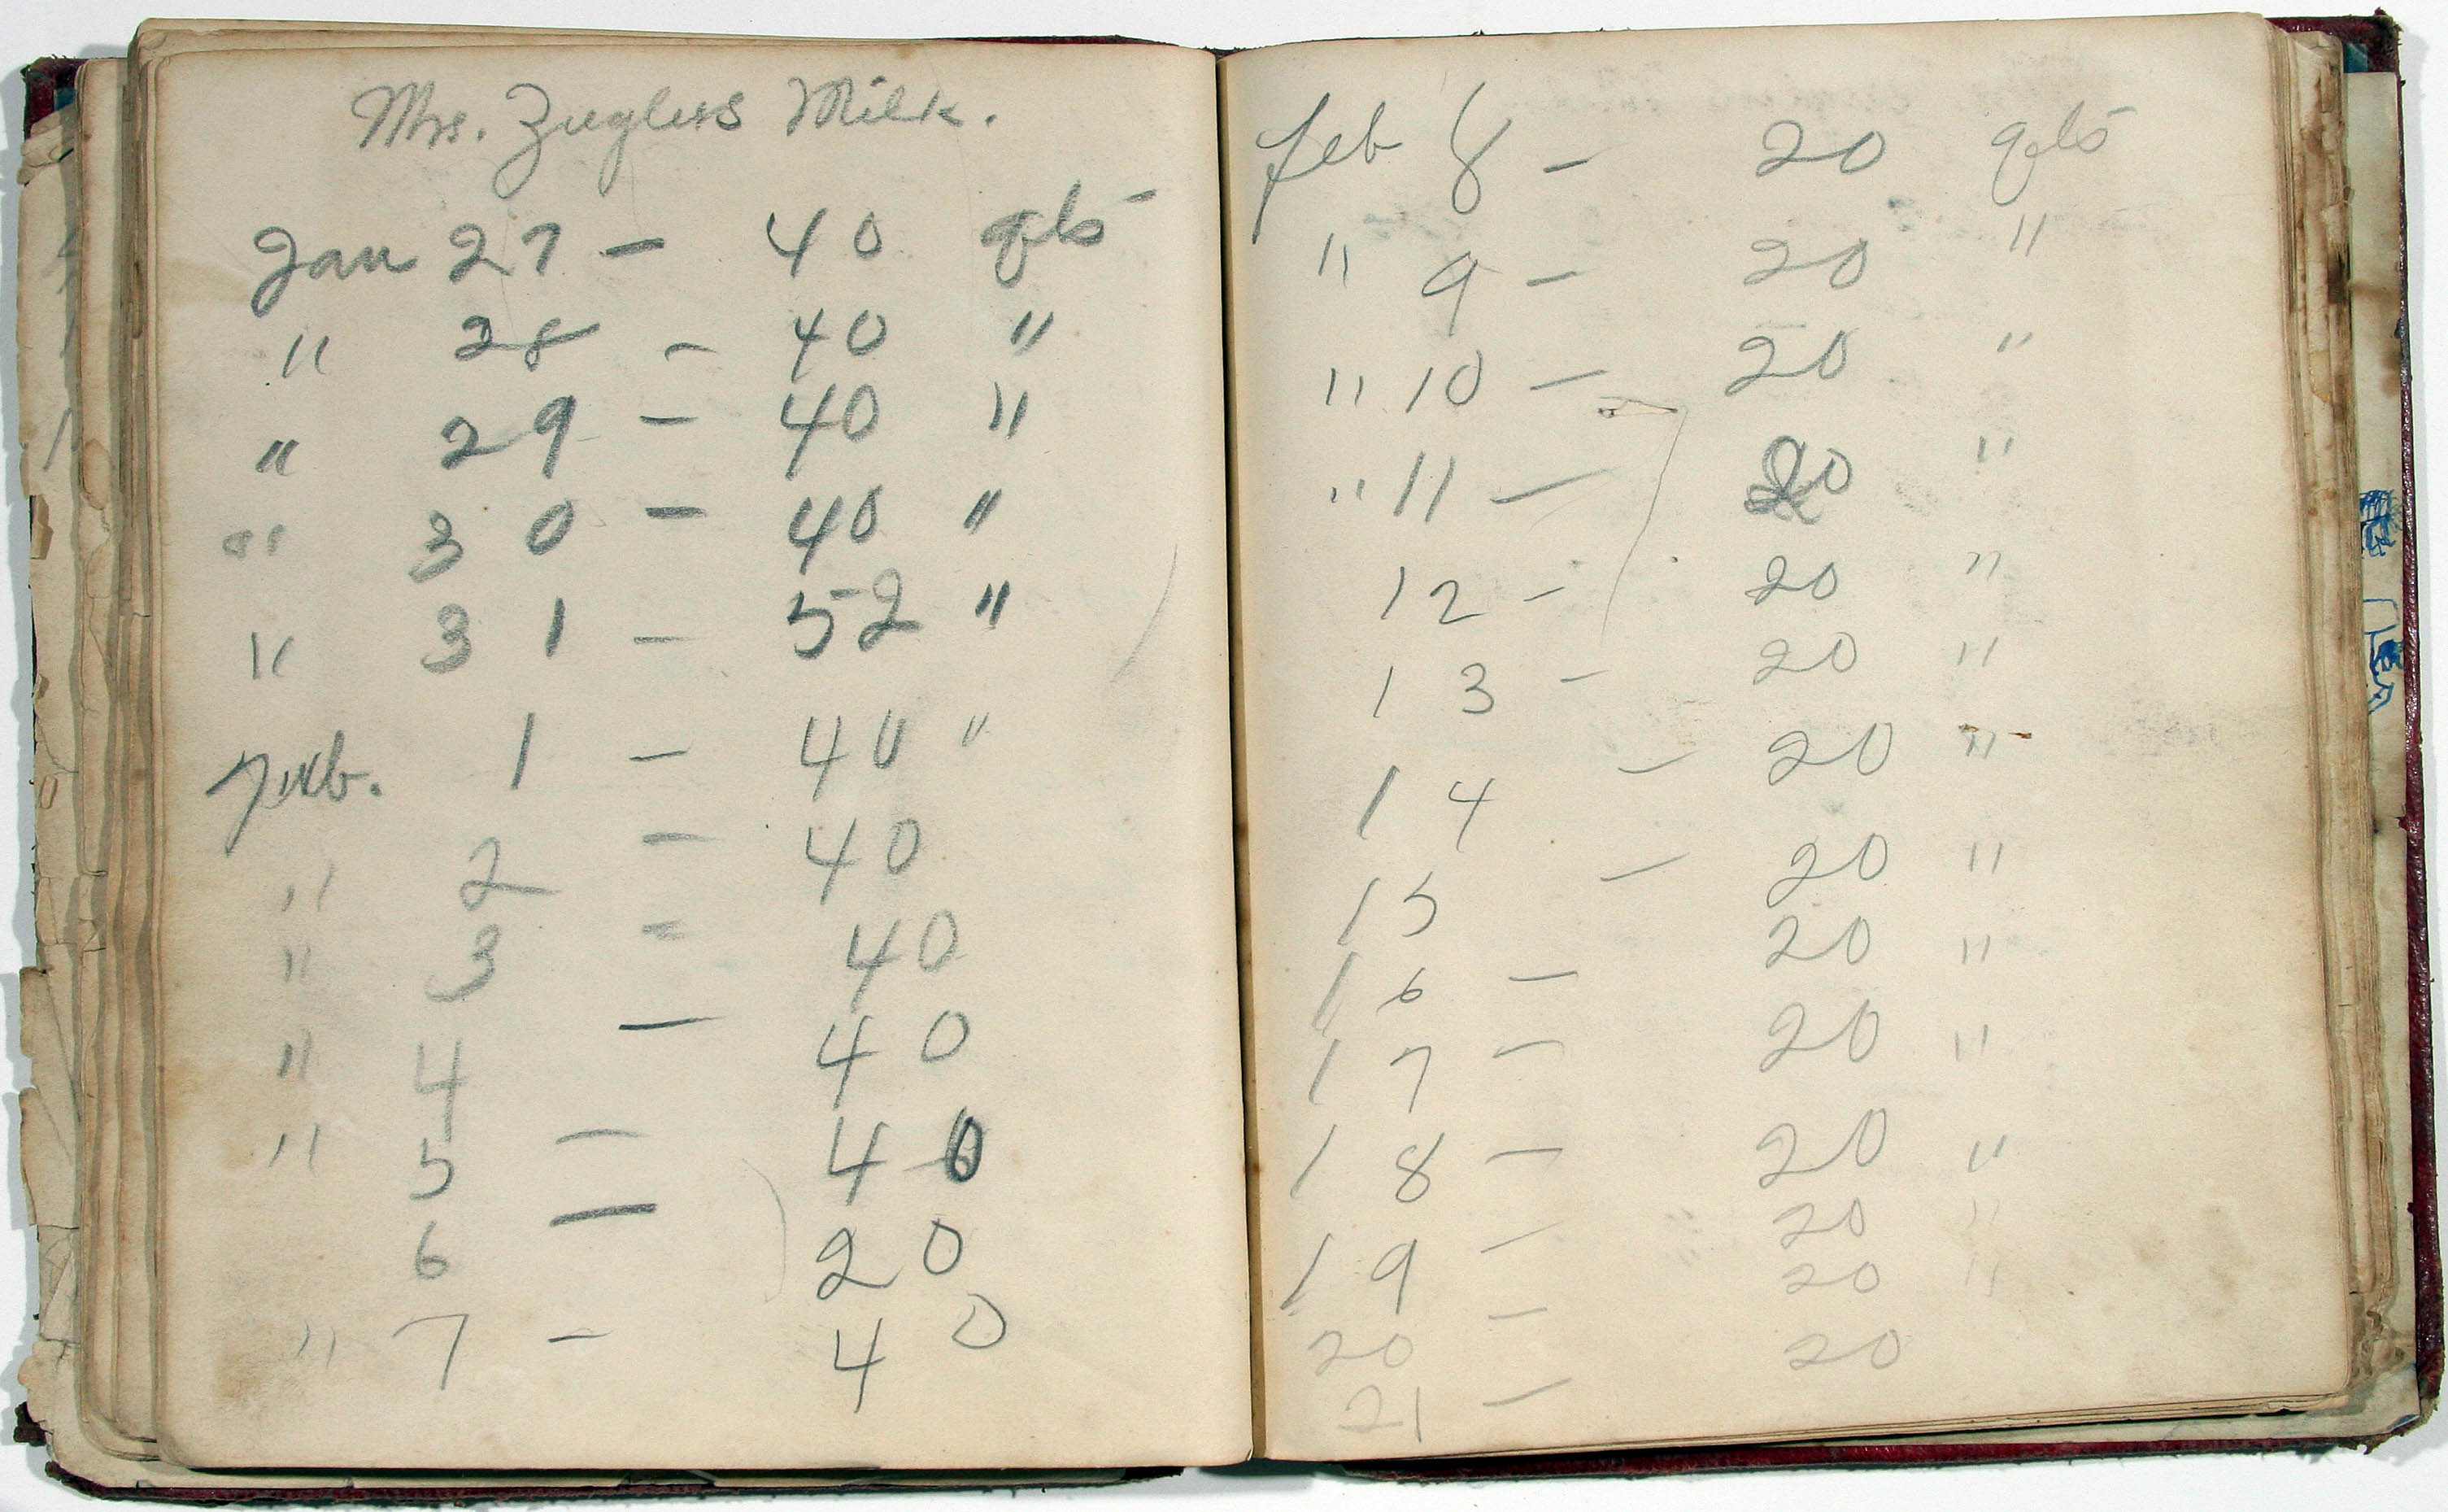 Mrs. Zieglers Milk.
Jan 27 – 40 qts
" 28 – 40 "
" 29 – 40 "
" 30 – 40 "
" 31 – 52 "
Feb. 1 – 40 "
" 2 – 40
" 3 – 40
" 4 – 40
" 5 – 40
6 – 20
" 7 – 40
Feb 8 – 20 qts
" 9 – 20 "
" 10 – 20 "
" 11 – 20 "
12 – 20 "
13 – 20 "
14 – 20 "
15 – 20 "
16 – 20 "
17 – 20 "
18 – 20 "
19 – 20 "
20 – 20 "
21 – 20